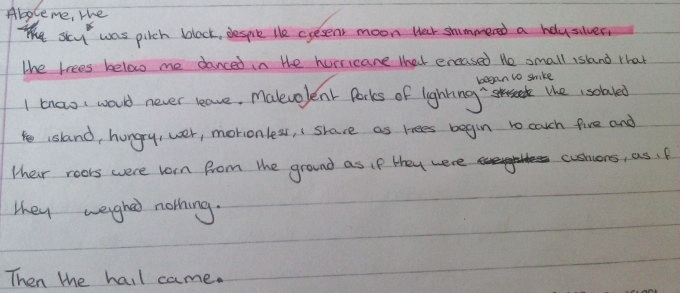 Above me, the
"The sky" was pitch black, despite the cresent moon that shimmered a holy silver,
the trees below me danced in the hurricane that encased the small island that
I know i would never leave. Malevolent forks of lighting began to strike the isolated
to island, hungry, wet, motionless, i stare as trees begin to catch fire and
their roots were torn from the ground as if they were weightless cushions, as if
they weighed nothing.
Then the hail came.